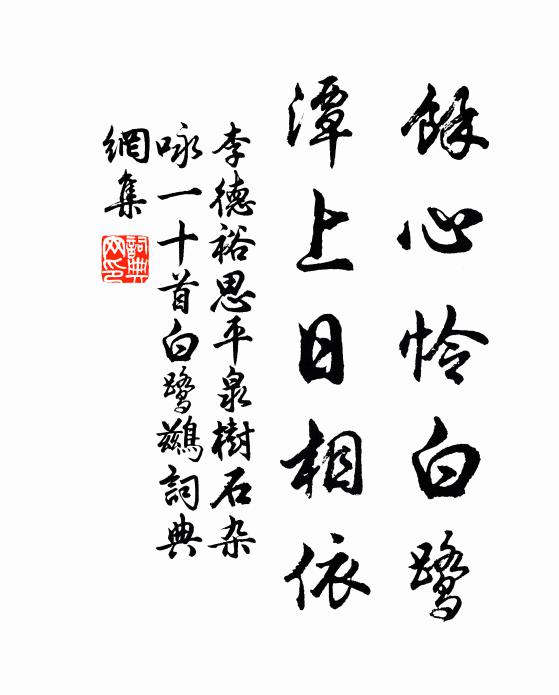 餘心怜白鹭
潭上日相依
李德裕思平泉樹石杂
咏一十首白鹭鷀詞典
網集
詞典
网印